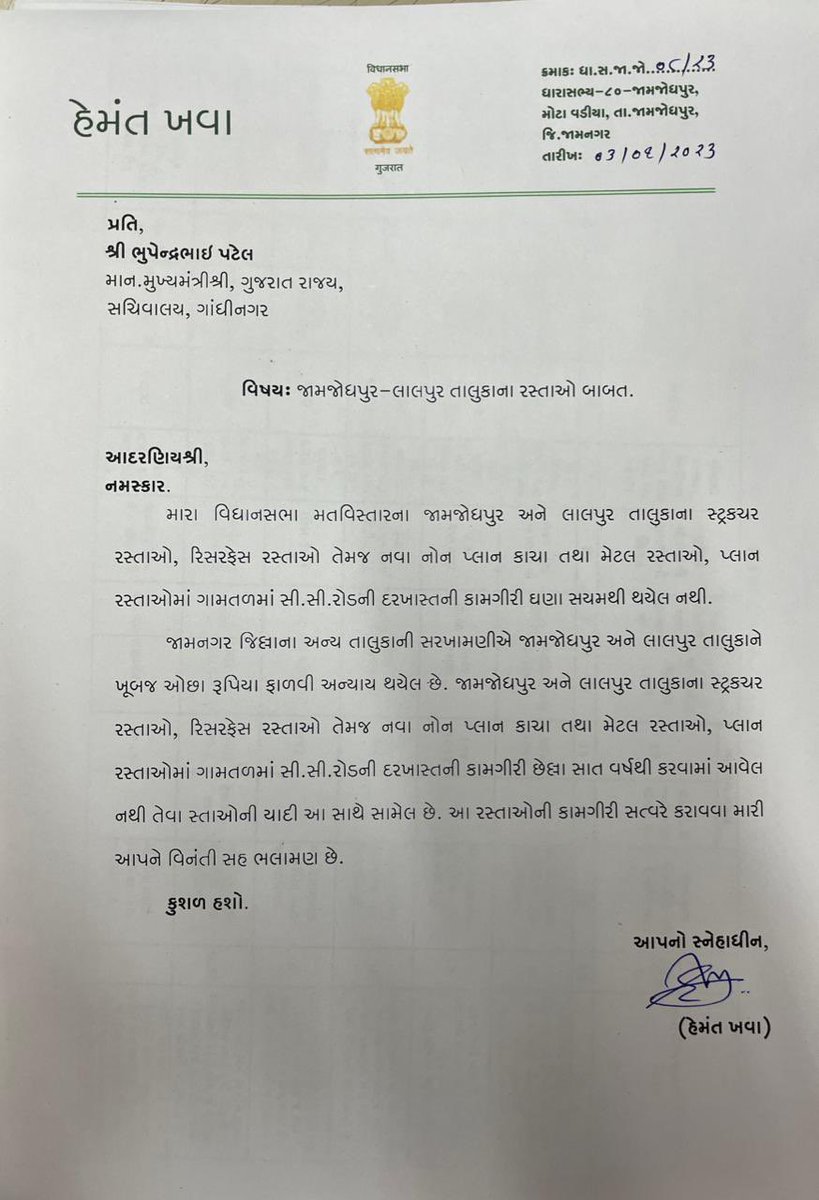 વિધાનસભા
सत्यमेव जयते
ગુજરાત
હેમંત ખવા
ક્રમાક: ધા.સ.જા.જો../૨3
ધારાસભ્ય-૮૦-જામજોધપુર,
મોટા વડીયા, તા.જામજોધપુર,
જિ.જામનગર
તારીખ: ૦3/૦૨/૨૦૨3
પ્રતિ,
શ્રી ભુપેન્દ્રભાઇ પટેલ
માન.મુખ્યમંત્રીશ્રી, ગુજરાત રાજય,
સચિવાલય, ગાંધીનગર
વિષય: જામજોધપુર-લાલપુર તાલુકાના રસ્તાઓ બાબત.
આદરણિયશ્રી,
નમસ્કાર.
મારા વિધાનસભા મતવિસ્તારના જામજોધપુર અને લાલપુર તાલુકાના સ્ટ્રકચર
રસ્તાઓ, રિસરફેસ રસ્તાઓ તેમજ નવા નોન પ્લાન કાચા તથા મેટલ રસ્તાઓ, પ્લાન
રસ્તાઓમાં ગામતળમાં સી.સી.રોડની દરખાસ્તની કામગીરી ઘણા સયમથી થયેલ નથી.
જામનગર જિલ્લાના અન્ય તાલુકાની સરખામણીએ જામજોધપુર અને લાલપુર તાલુકાને
ખૂબજ ઓછા રૂપિયા ફાળવી અન્યાય થયેલ છે. જામજોધપુર અને લાલપુર તાલુકાના સ્ટ્રકચર
રસ્તાઓ, રિસરફેસ રસ્તાઓ તેમજ નવા નોન પ્લાન કાચા તથા મેટલ રસ્તાઓ, પ્લાન
રસ્તાઓમાં ગામતળમાં સી.સી.રોડની દરખાસ્તની કામગીરી છેલ્લા સાત વર્ષથી કરવામાં આવેલ
નથી તેવા સ્તાઓની યાદી આ સાથે સામેલ છે. આ રસ્તાઓની કામગીરી સત્વરે કરાવવા મારી
આપને વિનંતી સહ ભલામણ છે.
કુશળ હશો.
આપનો સ્નેહાધીન,
(હેમંત ખવા)